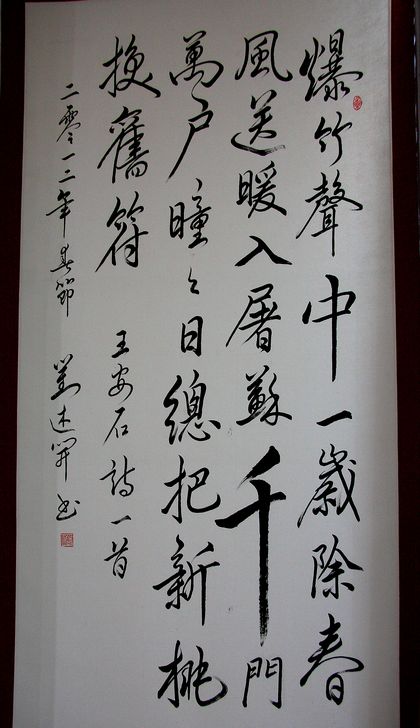 爆竹聲中一歲除春
風送暖入屠蘇千門
萬户曈々日總把新桃
換舊符 王安石詩一首
二零一二年春節 劉述书